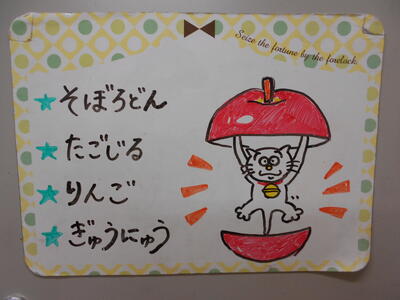 Seize the fortune by the forelock.
★そぼろどん
★たごじる
★りんご
★ぎゅうにゅう